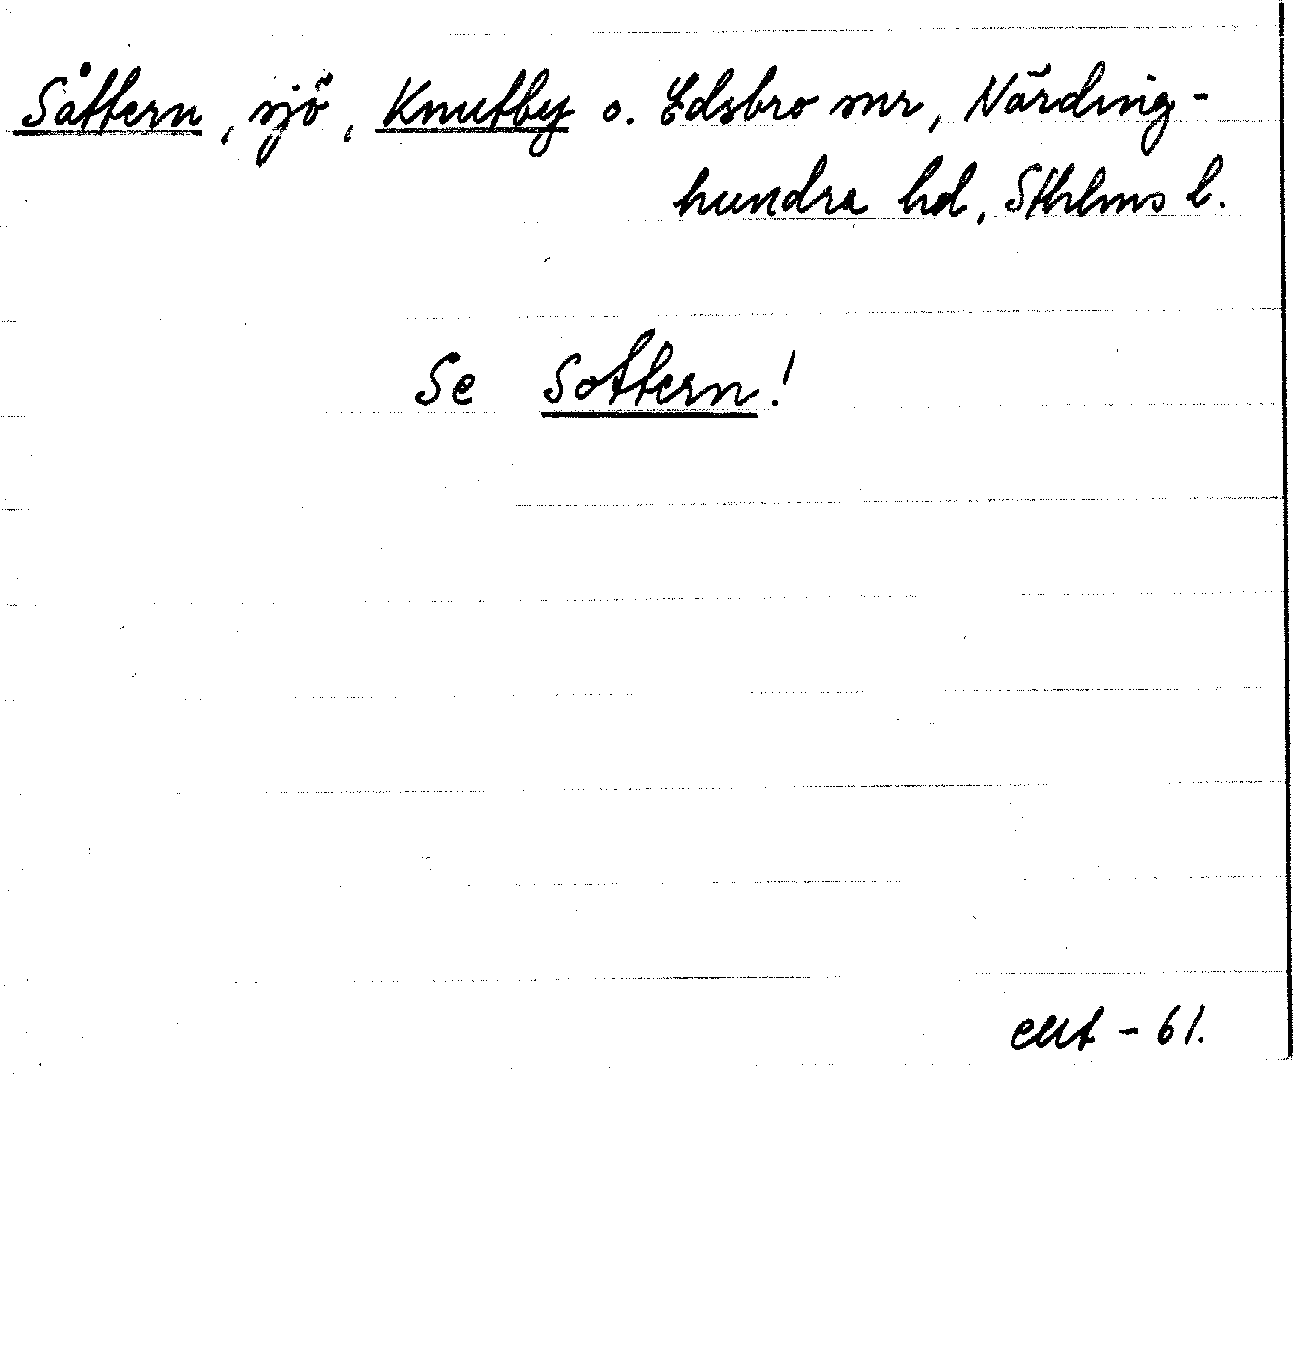 Såttern, sjö, Knutby o. Edsbro snr, Närding-
hundra hd, Sthlms l.
Se Sottern!
- 61.